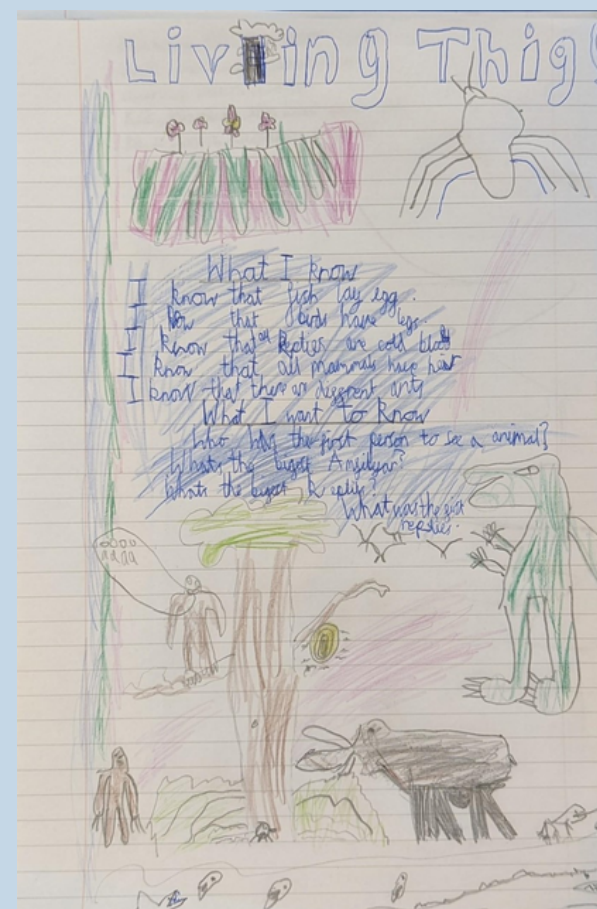 Living Thig
What I know
I know that fish lay egg.
I know that birds have legs.
I know that all Repties are cold blod
I know that all mammals have heat
I know that there are diggrent ants
What I want to know
Who was the first person to see a animal?
Whats the bigest
Whats the bigest Replie?
What was the first
repties.